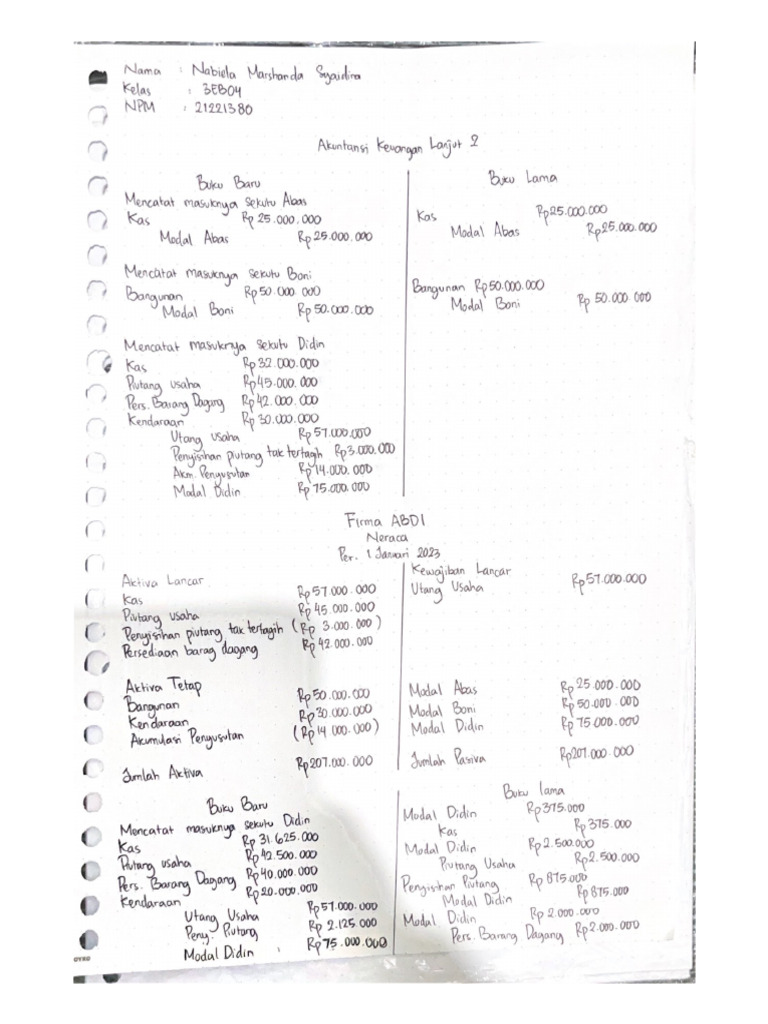 Nama : Nabiela Marshanda Syaidira
Kelas : 3EB04
NPM : 21221380
Akuntansi Keuangan Lanjut 2
Buku Baru
Mencatat masuknya sekutu Abas
Kas Rp 25.000.000
Modal Abas Rp 25.000.000
Mencatat masuknya sekutu Boni
Bangunan Rp 50.000.000
Modal Boni Rp 50.000.000
Mencatat masuknya sekutu Didin
Kas Rp 32.000.000
Piutang usaha Rp 45.000.000
Pers. Barang Dagang Rp 42.000.000
Kendaraan Rp 30.000.000
Utang usaha Rp 57.000.000
Penyisihan piutang tak tertagih Rp 3.000.000
Akm. Penyusutan Rp 14.000.000
Modal Didin Rp 75.000.000
Buku Lama
Kas Rp 25.000.000
Modal Abas Rp 25.000.000
Bangunan Rp 50.000.000
Modal Boni Rp 50.000.000
Firma ABDI
Neraca
Per. 1 Januari 2023
Aktiva Lancar
Kas Rp 57.000.000
Piutang usaha Rp 45.000.000
Penyisihan piutang tak tertagih (Rp 3.000.000)
Persediaan barag dagang Rp 42.000.000
Aktiva Tetap
Bangunan Rp 50.000.000
Kendaraan Rp 30.000.000
Akumulasi Penyusutan (Rp 14.000.000)
Jumlah Aktiva Rp 207.000.000
Kewajiban Lancar
Utang Usaha Rp 57.000.000
Modal Abas Rp 25.000.000
Modal Boni Rp 50.000.000
Modal Didin Rp 75.000.000
Jumlah Pasiva Rp 207.000.000
Buku Baru
Mencatat masuknya sekutu Didin
Kas Rp 31.625.000
Piutang usaha Rp 42.500.000
Pers. Barang Dagang Rp 40.000.000
Kendaraan Rp 20.000.000
Utang Usaha Rp 57.000.000
Peny. Piutang Rp 2.125.000
Modal Didin : Rp 75.000.000
Buku lama
Modal Didin Rp 375.000
Kas Rp 375.000
Modal Didin Rp 2.500.000
Piutang Usaha Rp 2.500.000
Penyisihan Piutang Rp 875.000
Modal Didin Rp 875.000
Modal Didin Rp 2.000.000
Pers. Barang Dagang Rp 2.000.000